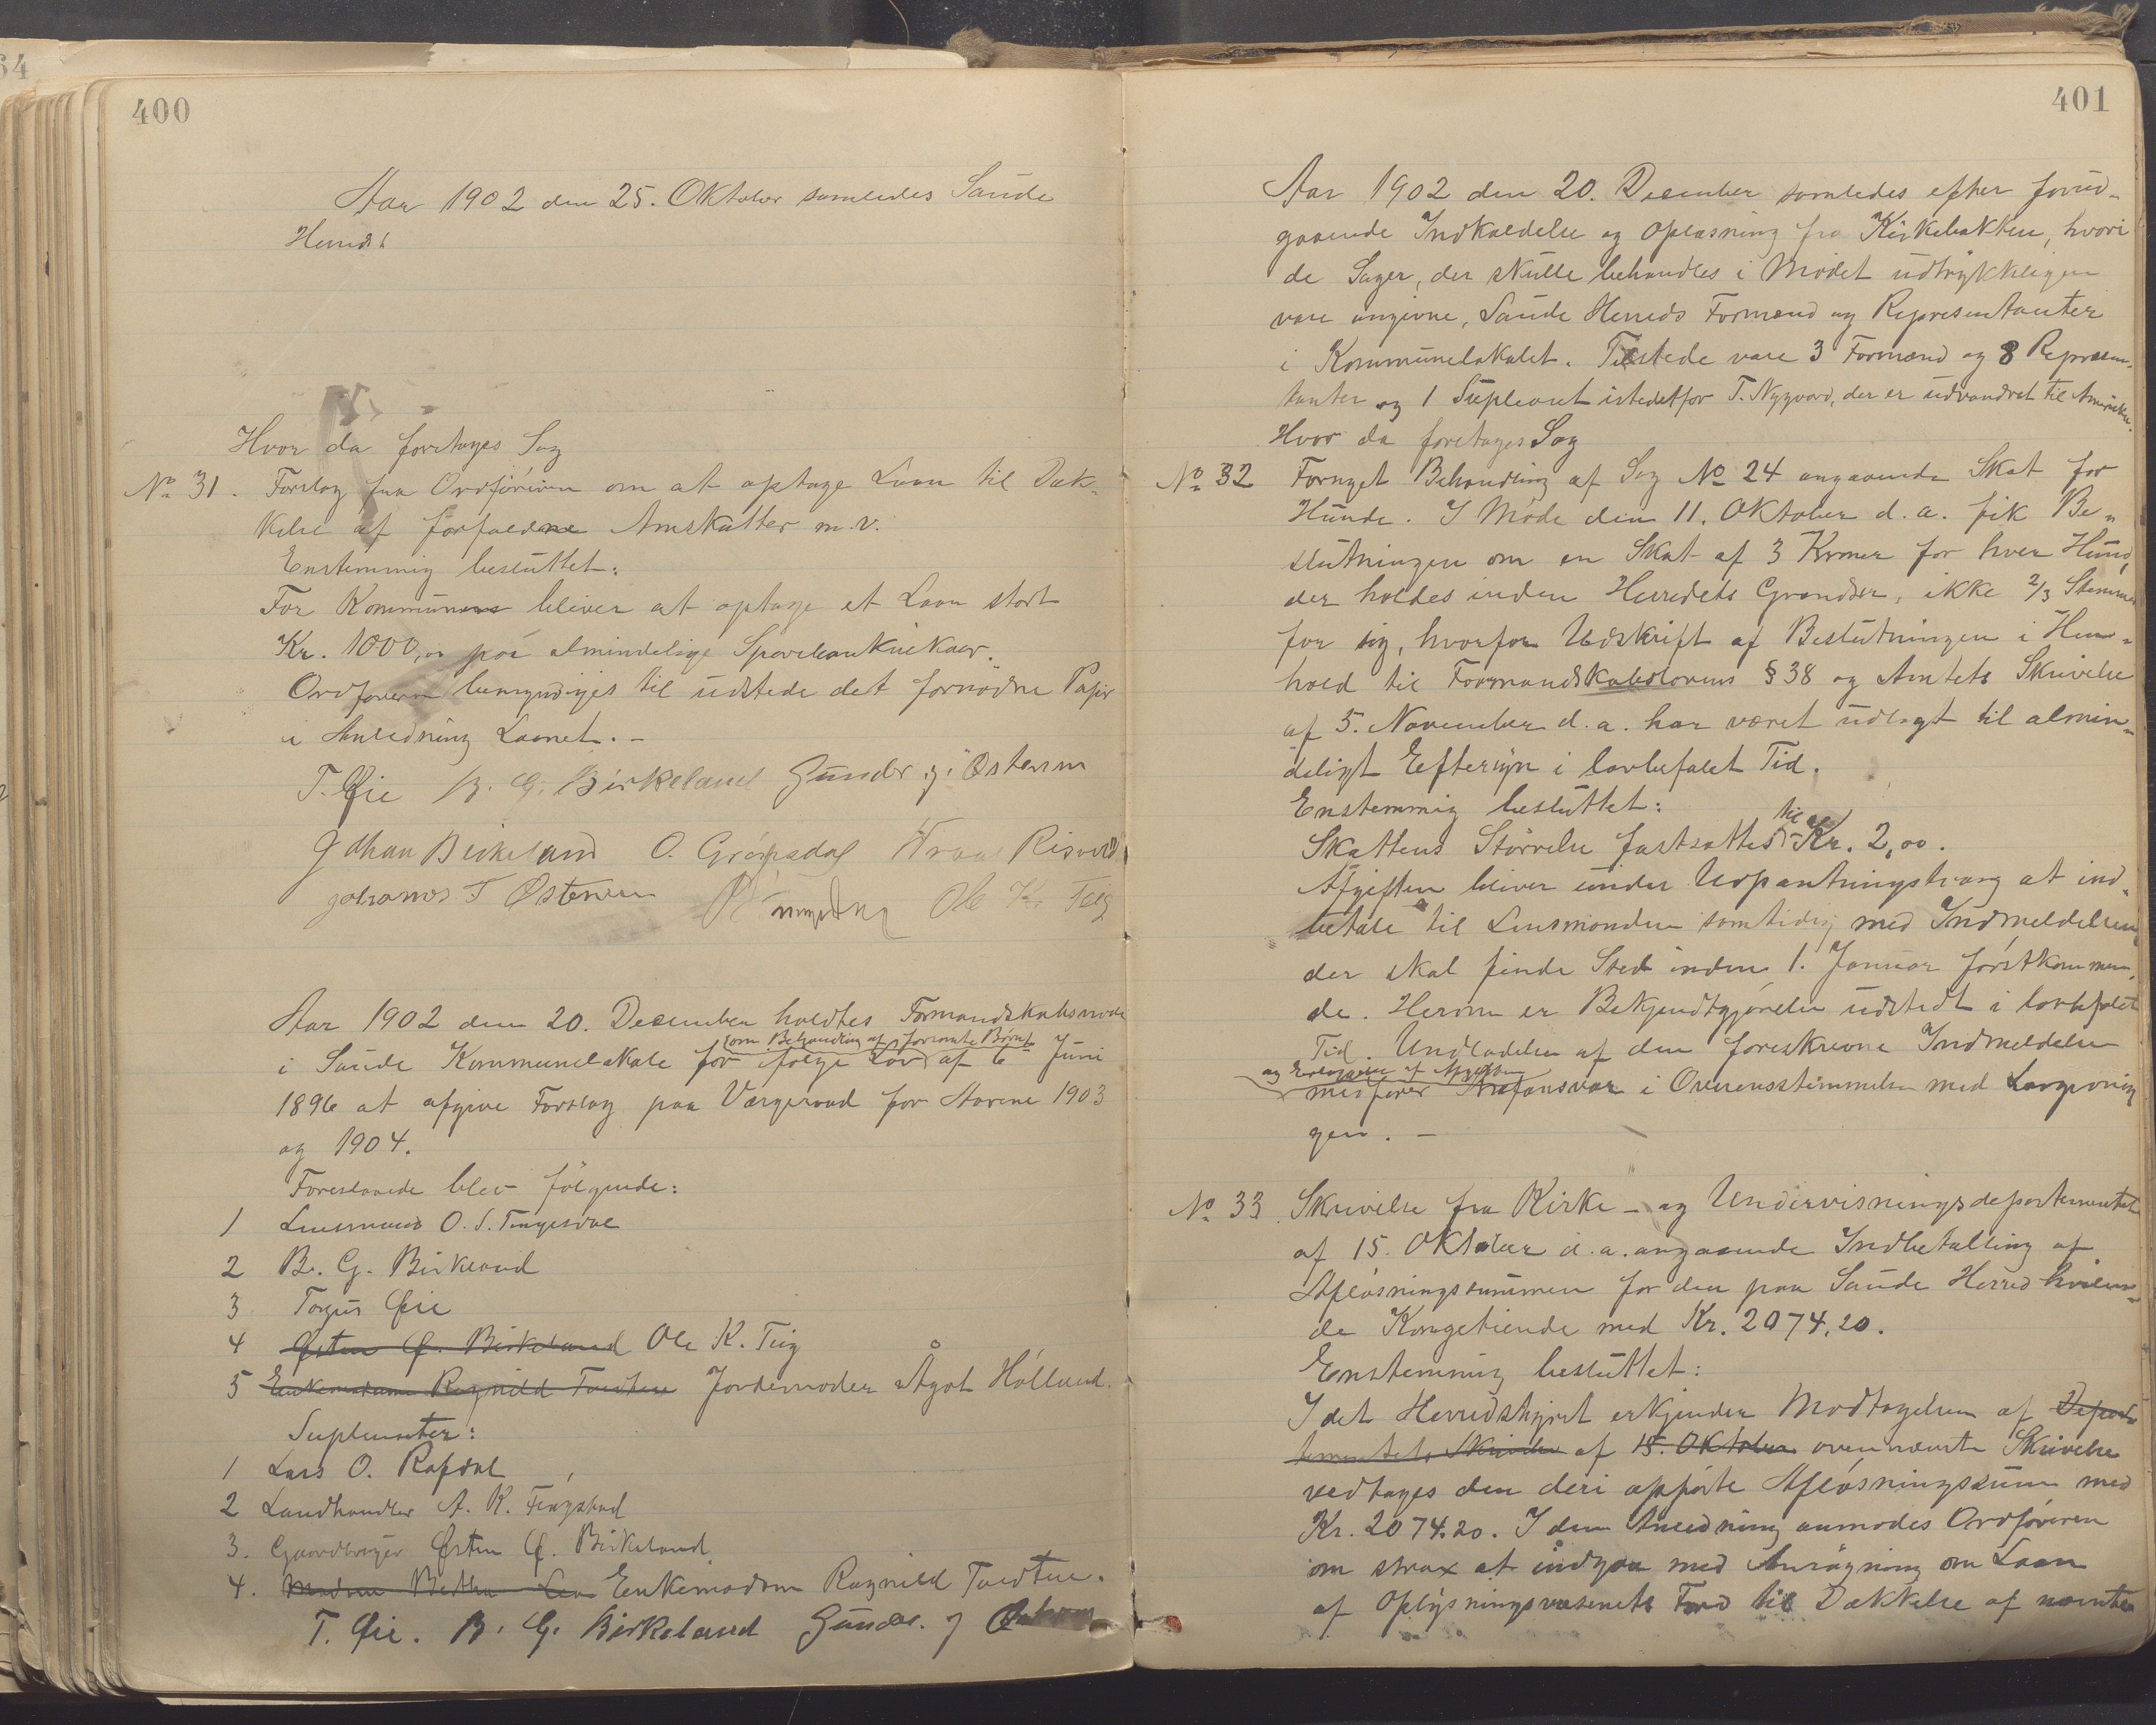 400
Aar 1902 den 25. Oktober samledes Saude
Hvor da foretages Sag
No 31. Forslag fra Ordføreren om at optage Laan til Dæk-
kelse af forfaldne Amskatter m.v.
Enstemmig besluttet:
For Kommunens bliver at optage et Laan stort
Kr. 1000,00 paa almindelige Sparebankvilkaar.
Ordføreren bemyndiges til udstede det fornødne Papir
i Anledning Laanet. -
T. Øie B. G. Birkeland Gunder
Johan Birkeland O.
Johannes T Østensen Ole K. Teig
Aar 1902 den 20. December holdtes Formandskabsmøde
i Saude Kommunelokale for følge Lov om Behandling af forsømte Børn af 6 Juni
1896 at afgive Forslag paa Værgeraad for Aarene 1903
og 1904.
Foreslaaede blev følgende:
1 Lensmand O. S.
2 B. G. Birkeland
3 Øie
4 Østen Ø. Birkeland Ole K. Teig
5 Enkemadam Ragnild Jordemoder Ågot Hølland.
Suplenter:
1 Lars O.
2 Landhandler A. K.
3. Gaardbruger Østen Ø. Birkeland
4. Madam Bertha Enkemadam Ragnild
T. Øie. B. G. Birkeland Gunder
401
Aar 1902 den 20. December samledes efter forud-
gaaende Indkaldelse og Oplæsning fra Kirkebakken, hvori
de Sager, der skulle behandles i Mødet udtrykkeligen
vare angivne, Saude Herreds Formænd og Representanter
i Kommunelokalet. Tilstede vare 3 Formænd og 8 Represen-
tanter og 1 Supleant istedetfor T. Nygaard, der er udvandret til Amerika.
Hvor da foretages Sag
No 32 Fornyet Behandling af Sag No 24 angaaende Skat for
Hunde. I Møde den 11. Oktober d. a. fik Be-
slutningen om en Skat af 3 Kroner for hver Hund,
der holdes inden Herredets Grændser, ikke 2/3 Stemmer
for sig, hvorfor Udskrift af Beslutningen i Hen-
hold til Formandskabslovens § 38 og Amtets Skrivelse
af 5. November d. a. har været udlagt til almin-
deligt Eftersyn i lovbefalet Tid.
Enstemmig besluttet:
Skattens Størrelse fastsattes til Kr. 2,00.
Afgiften bliver under Udpantningstvang at ind-
betale til Lensmanden samtidig med Indmeldelsen,
der skal finde Sted inden 1. Januar førstkommen-
de. Herom er Bekjendtgjørelse udstedt i lovbefalet
Tid. Undladelse af den foreskrevne Indmeldelse
og Erlæggelse af Afgiften
medfører Strafansvar i Overensstemmelse med Lovgivnin
gen. -
No 33. Skrivelse fra Kirke- og Undervisningsdepartementet
af 15. Oktober d. a. angaaende Indbetalling af
Afløsningssummen for den paa Saude Herred hvilen-
de Kongetiende med Kr. 2074,20.
Enstemmig besluttet:
I det Herredstyret erkjender Modtagelsen af Depar
tementets Skrivelse af 15. Oktober ovennævnte Skrivelse
vedtages den deri opførte Afløsningssum med
Kr. 2074.20. I den Anledning anmodes Ordføreren
om strax at indgaa med Ansøgning om Laan
af Oplysningsvæsenets Fond til Dækkelse af nævnte